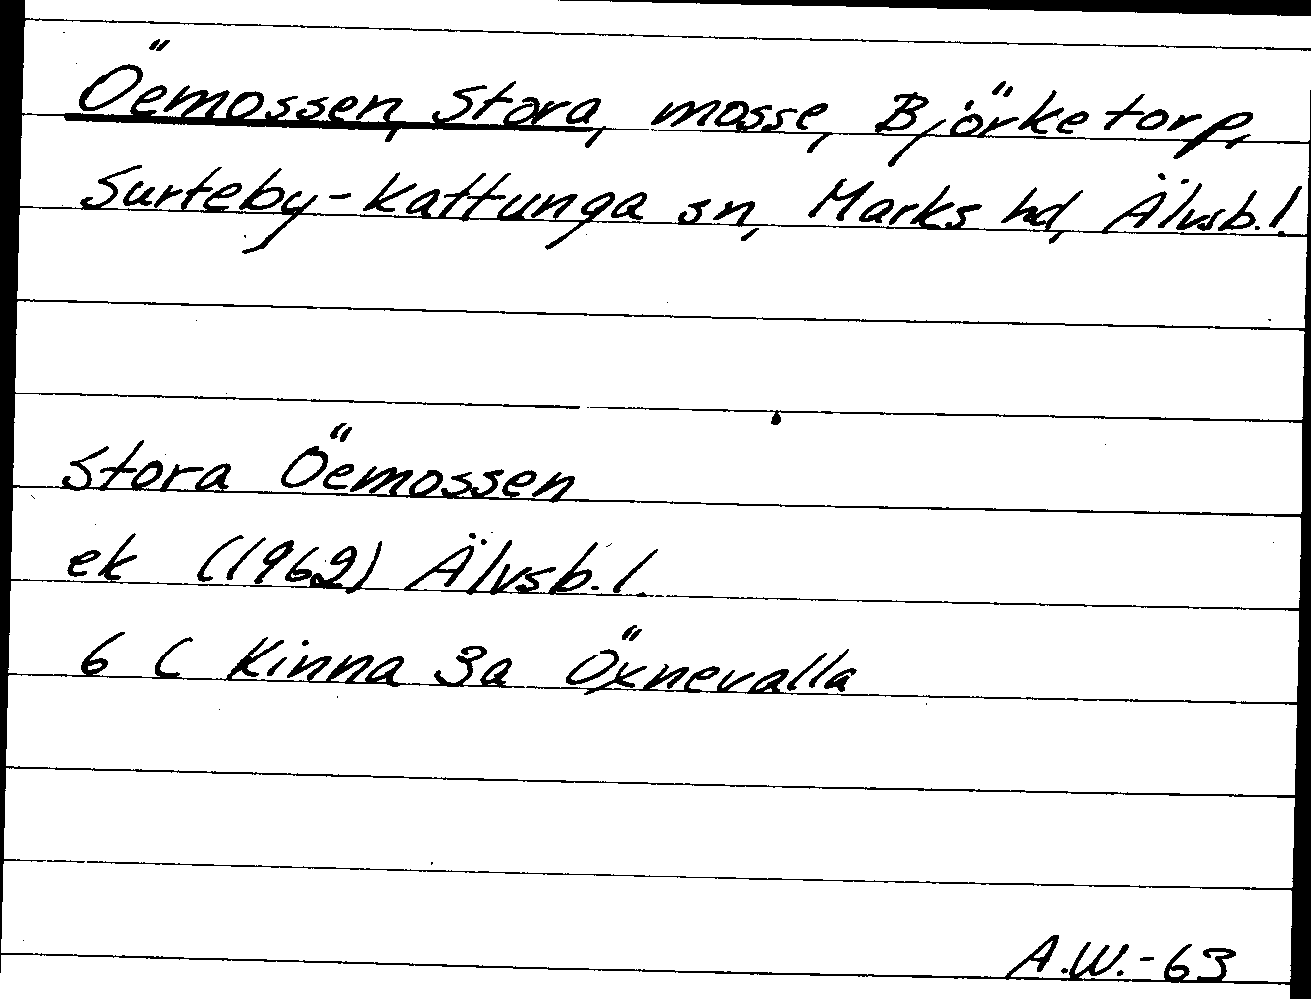 Öemossen, Stora, mosse, Björketorp,
Surteby-Kattunga sn, Marks hd, Älvsb.l.
Stora Öemossen
ek (1962) Älvsb.l.
6 C Kinna 3a Öxnevalla
A.W.-63